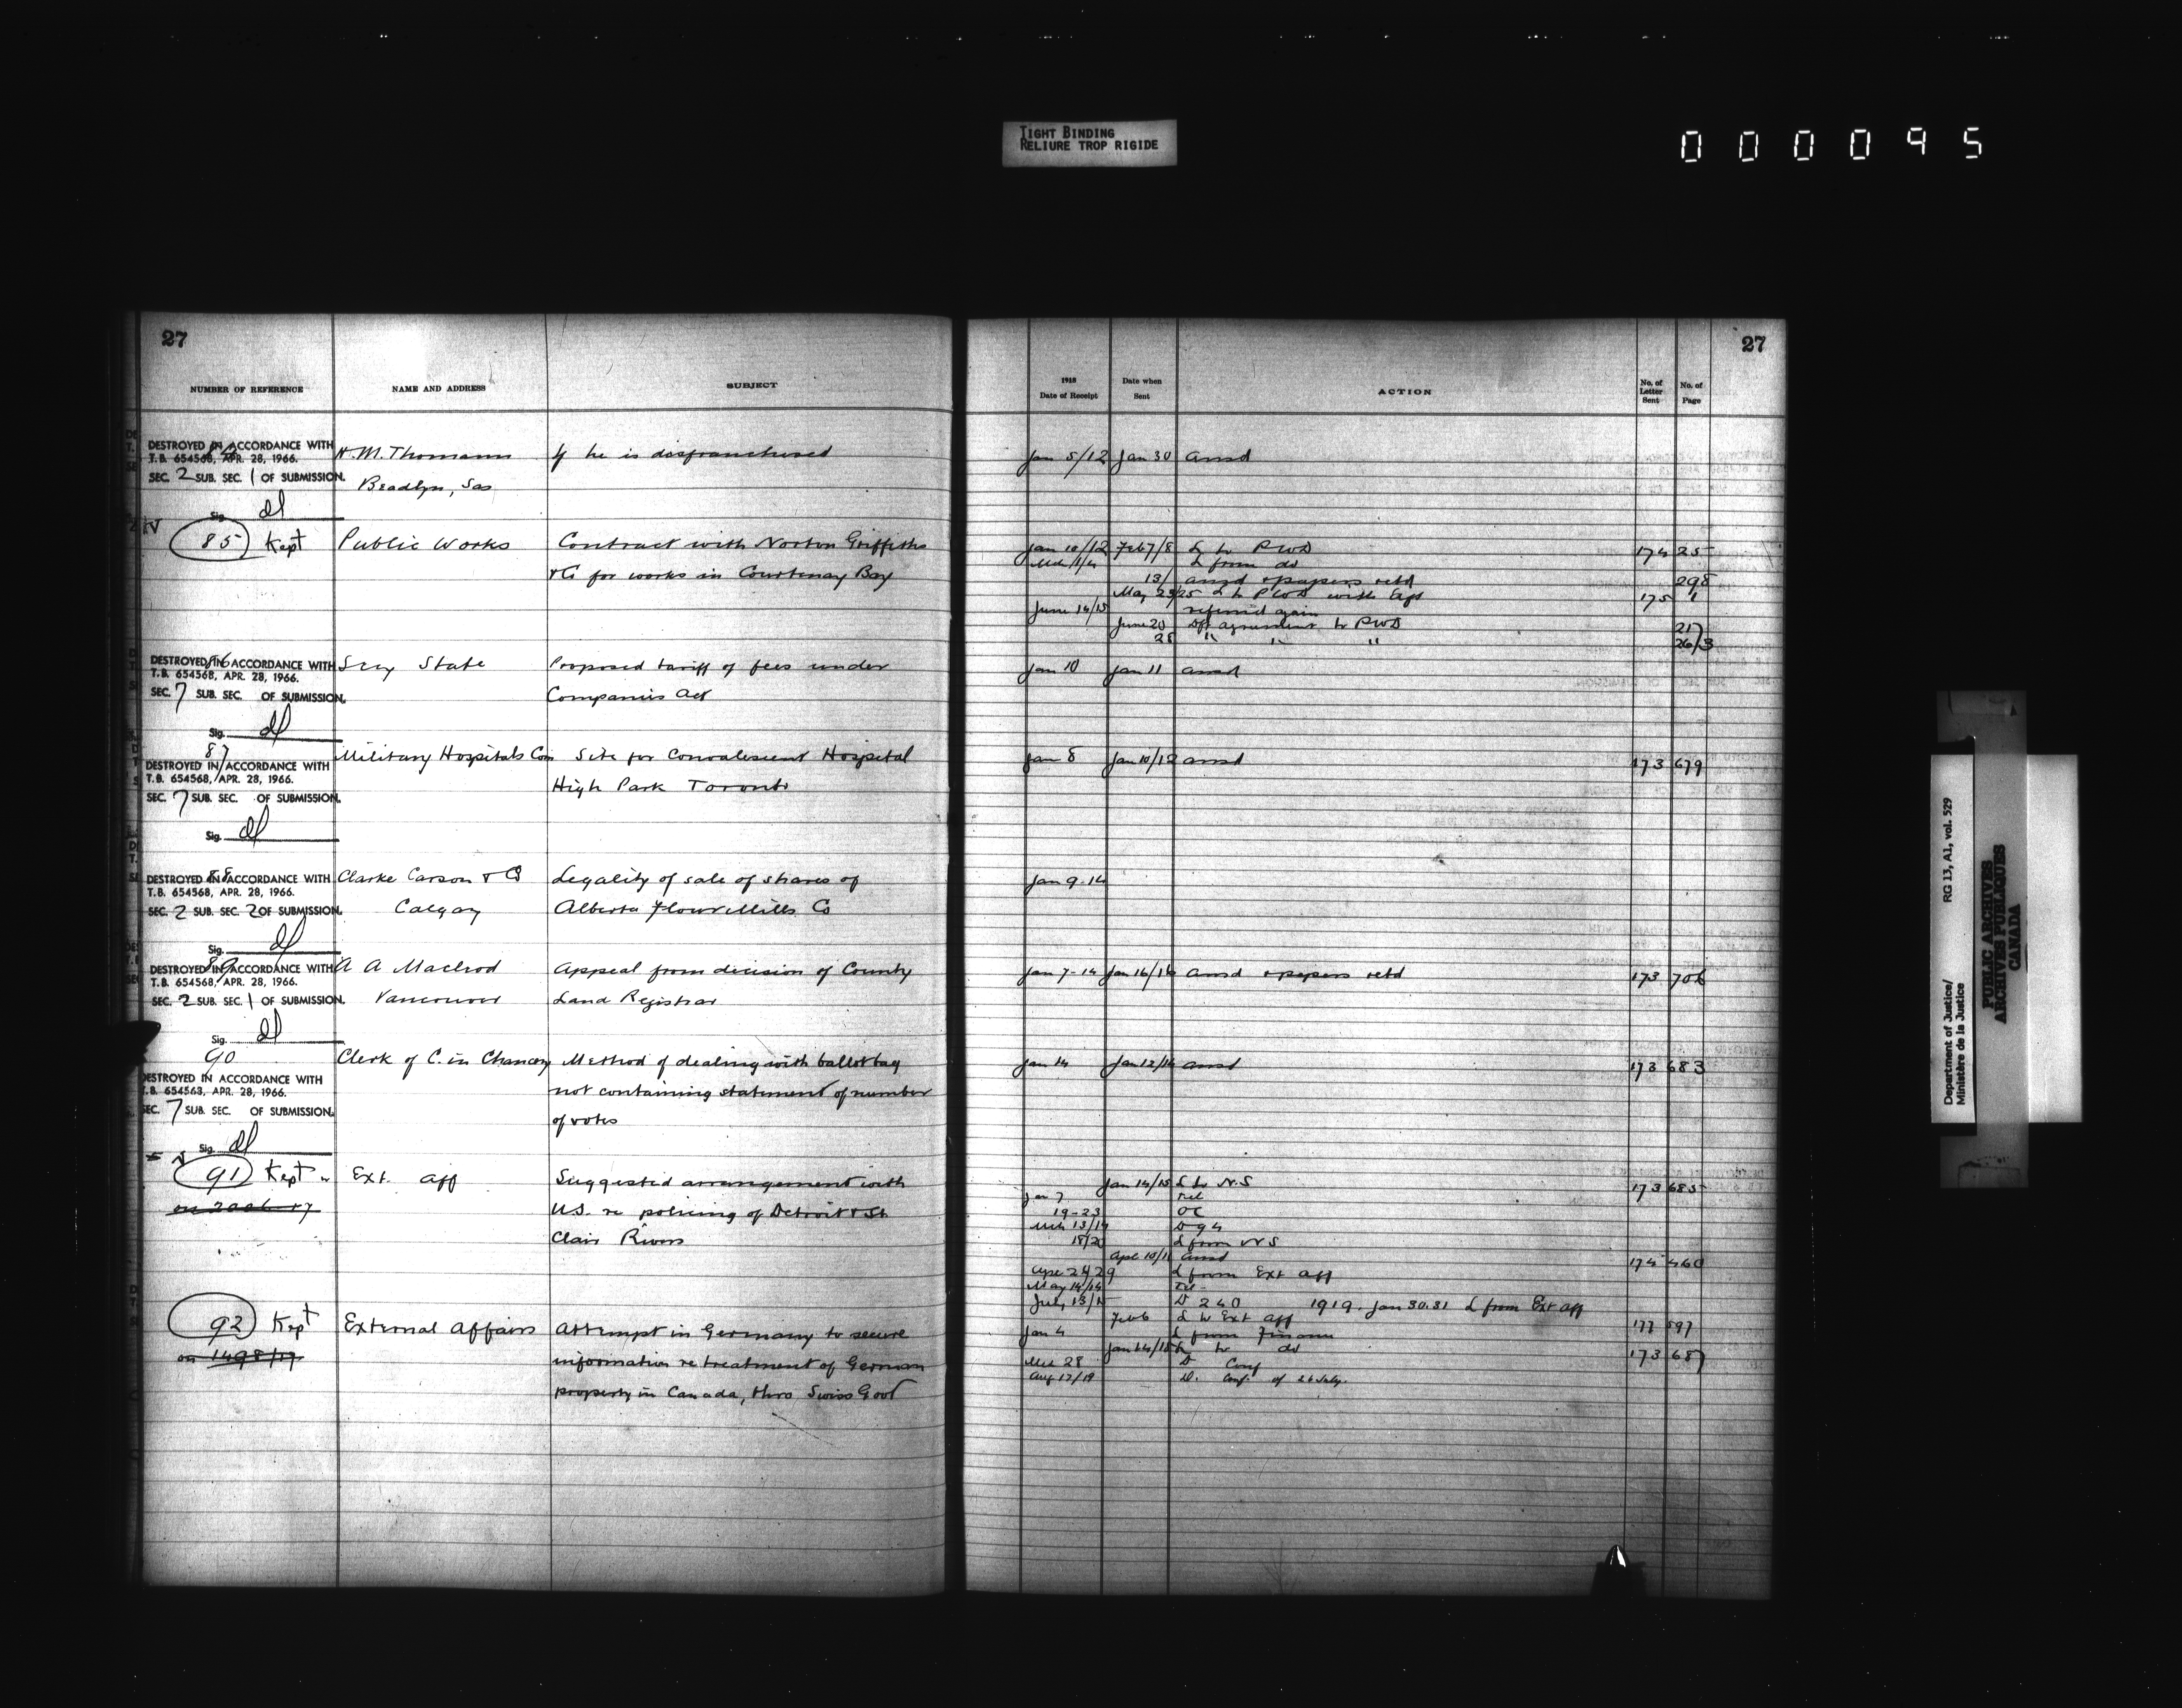 TIGHT BINDING
RELIURE TROP RIGIDE
000095
27
NUMBER OF REFERENCE NAME AND ADDRESS SUBJECT
84 H. M. Thomann If he is disfranchised
DESTROYED IN ACCORDANCE WITH
T.B. 654568, APR. 28, 1966.
SEC. 2 SUB. SEC. 1 OF SUBMISSION.
Sas
Sig. dl
85 Kept Public Works Contract with Norton Griffiths
& Co for works in Courtenay Bay
86 Secy State Proposed tariff of fees under
DESTROYED IN ACCORDANCE WITH
T.B. 654568, APR. 28, 1966.
Companies Act
SEC. 7 SUB. SEC. OF SUBMISSION.
Sig. dl
87 Military Hospitals Com Site for Convalescent Hospital
DESTROYED IN ACCORDANCE WITH
T.B. 654568, APR. 28, 1966.
High Park Toronto
SEC. 7 SUB. SEC. OF SUBMISSION.
Sig. dl
88 Clarke Carson & Co Legality of sale of shares of
DESTROYED IN ACCORDANCE WITH
T.B. 654568, APR. 28, 1966.
Calgary Alberta Flour Mills Co
SEC. 2 SUB. SEC. 2 OF SUBMISSION.
Sig. dl
89 A A Macleod Appeal from decision of County
DESTROYED IN ACCORDANCE WITH
T.B. 654568, APR. 28, 1966.
Vancouver Land Registrar
SEC. 2 SUB. SEC. 1 OF SUBMISSION.
Sig. dl
90 Clerk of C. in Chancery Method of dealing with ballot bag
DESTROYED IN ACCORDANCE WITH
T.B. 654563, APR. 28, 1966.
not containing statement of number
SEC. 7 SUB. SEC. OF SUBMISSION.
of votes
Sig. dl
91 Kept Ext. Aff Suggested arrangement with
U.S. re policing of Detroit & St
Clair Rivers
92 Kept External Affairs Attempt in Germany to secure
on 1498/17 information re treatment of German
property in Canada, thro Swiss Govt
27
1918 Date of Receipt Date when Sent ACTION No. of Letter Sent No. of Page
Jan 5/12 Jan 30 ansd
Jan 10/12 Feb 7/8 L to PWD 174 25
L from do
13/ ansd & papers retd 298
May 23/25 L to PWD with Eng 175 1
June 14/15 referred again
June 20 Dft agreement to PWD 21
28 " " " 26/3
Jan 10 Jan 11 ansd
Jan 8 Jan 10/12 ansd 173 679
Jan 9-14
Jan 7-14 Jan 16/16 ansd & papers retd 173 706
Jan 14 Jan 12/14 ansd 173 683
Jan 14/15 L to N.S 173 685
Jan 7 Tel
19-23 OC
Mch 13/14 D 94
18/20 L from NS
Apl 10/11 ansd 174 460
Apr 24/29 L from Ext Aff
May 14/14 Tel
July 13/15 D 240 1919. Jan 30.31 L from Ext aff
Feb 6 L to Ext Aff 177 597
Jan 4 L from Finance
Jan 14/15 L to do 173 687
Mch 28 D Conf
Aug 17/19 D. Conf. of 26 July.
Department of Justice/
Ministère de la Justice
RG 13, A1, vol. 529
PUBLIC ARCHIVES
ARCHIVES PUBLIQUES
CANADA